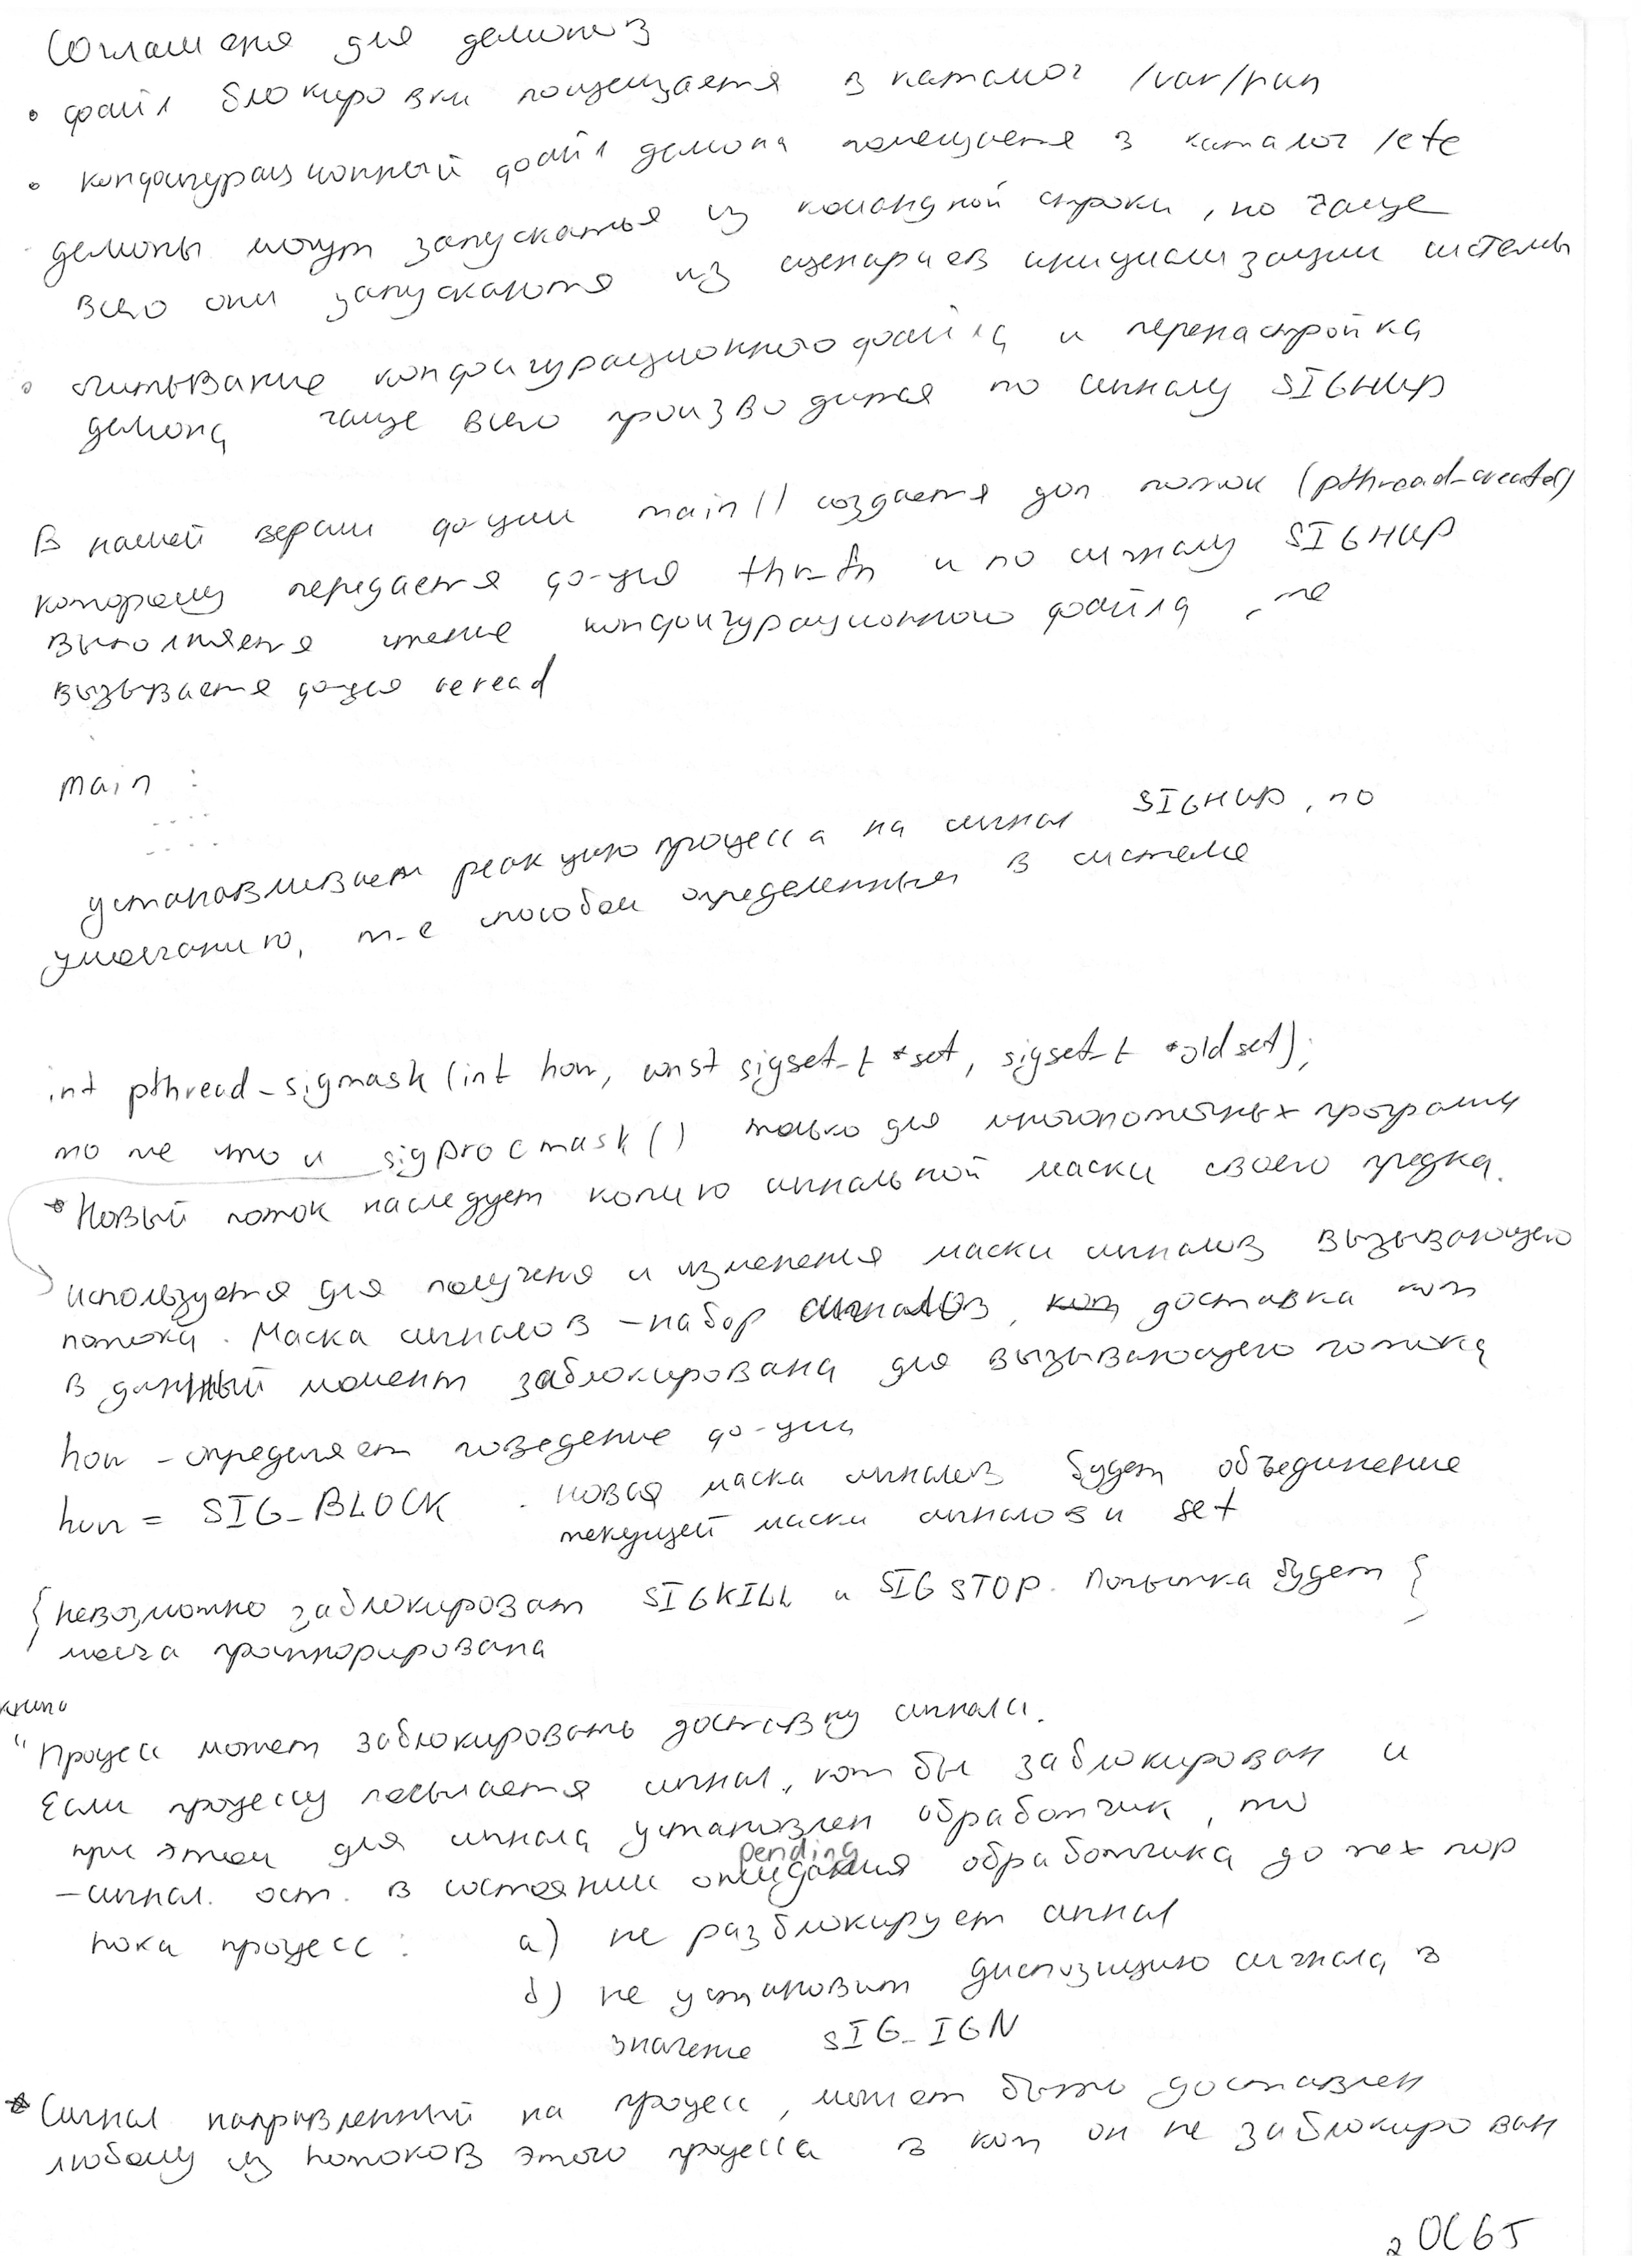 Соглашения для демонов
• файл блокировки помещается в каталог /var/run
• конфигурационный файл демона помещается в каталог /etc
- демоны могут запускаться из командной строки, но чаще
всего они запускаются из сценариев инициализации системы
• считывание конфигурационного файла и перенастройка
демона чаще всего производится по сигналу SIGHUP
В нашей версии ф-ции main() создается доп поток (pthread_create())
которому передается ф-ция thr_fn и по сигналу SIGHUP
выполняется чтение конфигурационного файла, те
вызывается ф-ция reread
main :
устанавливаем реакцию процесса на сигнал SIGHUP, по
умолчанию, т-е способом определенным в системе
int pthread_sigmask(int how, const sigset_t *set, sigset_t *oldset);
то же что и sigprocmask() только для многопоточных программ
* Новый поток наследует копию сигнальной маски своего предка.
используется для получения и изменения маски сигналов вызывающего
потока. Маска сигналов - набор сигналов, доставка кот
в данный момент заблокирована для вызывающего потока
how - определяет поведение ф-ции
how = SIG_BLOCK . новая маска сигналов будет объединение
текущей маски сигналов и set
{ невозможно заблокировать SIGKILL и SIGSTOP. Попытка будет }
молча проигнорирована
книга
" Процесс может заблокировать доставку сигнала.
Если процессу посылается сигнал, кот бы заблокирован и
при этом для сигнала установлен обработчик, то
pending
- сигнал. ост. в состоянии ожидания обработчика до тех пор
пока процесс : а) не разблокирует сигнал
б) не установит диспозицию сигнала в
значение SIG_IGN
* Сигнал направленный на процесс, может быть доставлен
любому из потоков этого процесса в кот он не заблокирован
2 ОС6J